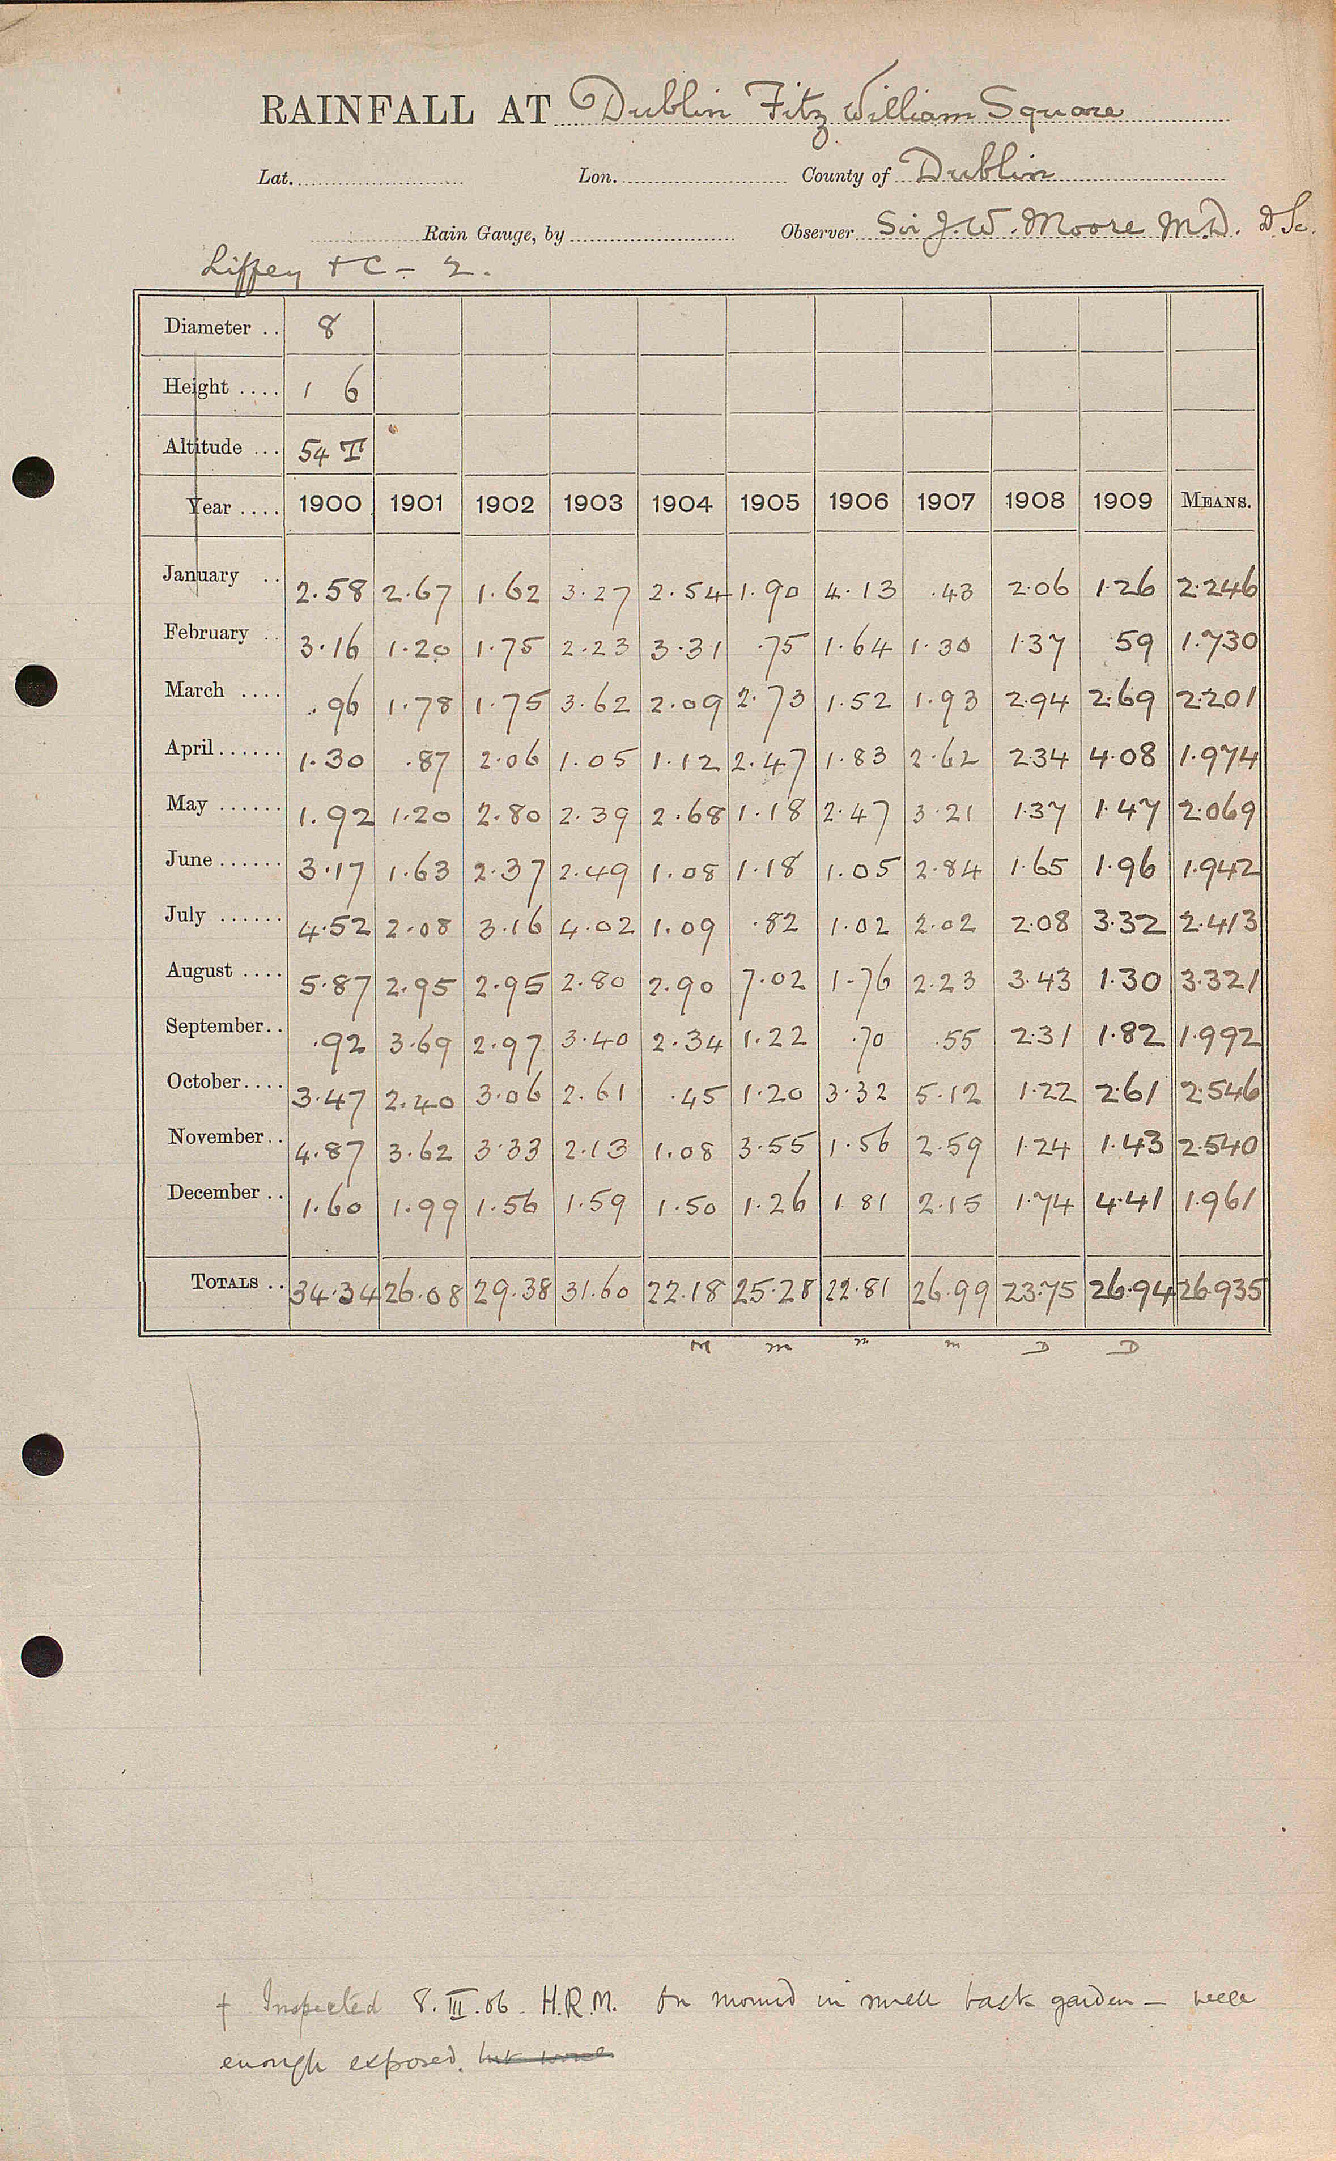 RAINFALL AT Dublin Fitz William Square
Lat. Lon. County of Dublin
Rain Gauge, by Observer Sir J. W. Moore M.D. D.Sc.
Liffey + C - 2.
Diameter .. 8
Height .... 1 6
Altitude ... 54 T
Year .... 1900 1901 1902 1903 1904 1905 1906 1907 1908 1909 MEANS.
January .. 2.58 2.67 1.62 3.27 2.54 1.90 4.13 .43 2.06 1.26 2.246
February .. 3.16 1.20 1.75 2.23 3.31 .75 1.64 1.30 1.37 59 1.730
March .... .96 1.78 1.75 3.62 2.09 2.73 1.52 1.93 2.94 2.69 2.201
April ...... 1.30 .87 2.06 1.05 1.12 2.47 1.83 2.62 2.34 4.08 1.974
May ...... 1.92 1.20 2.80 2.39 2.68 1.18 2.47 3.21 1.37 1.47 2.069
June ...... 3.17 1.63 2.37 2.49 1.08 1.18 1.05 2.84 1.65 1.96 1.942
July ...... 4.52 2.08 3.16 4.02 1.09 .82 1.02 2.02 2.08 3.32 2.413
August .... 5.87 2.95 2.95 2.80 2.90 7.02 1.76 2.23 3.43 1.30 3.321
September.. .92 3.69 2.97 3.40 2.34 1.22 .70 .55 2.31 1.82 1.992
October.... 3.47 2.40 3.06 2.61 .45 1.20 3.32 5.12 1.22 2.61 2.546
November.. 4.87 3.62 3.33 2.13 1.08 3.55 1.56 2.59 1.24 1.43 2.540
December .. 1.60 1.99 1.56 1.59 1.50 1.26 1.81 2.15 1.74 4.41 1.961
TOTALS .. 34.34 26.08 29.38 31.60 22.18 25.28 22.81 26.99 23.75 26.94 26.935
M m m m D D
† Inspected 8.III.06. H.R.M. On mound in small back garden — well
enough exposed.